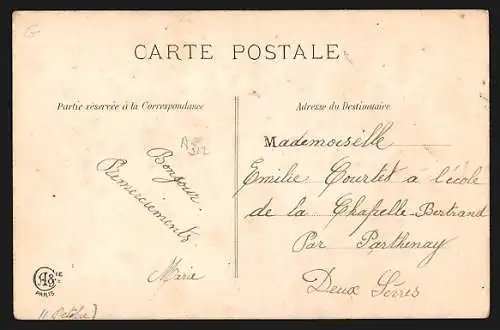 CARTE POSTALE
Partie réservée à la Correspondance
Adresse du Destinataire
Bonjour.
Remerciements
Marie
Mademoiselle
Emilie Courtet à l'école
de la Chapelle-Bertrand
Par Parthenay
Deux Sèvres
PARIS